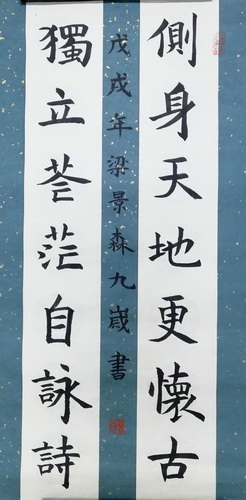 側身天地更懷古
戊戌年梁景森九歲書
獨立苍茫自詠詩